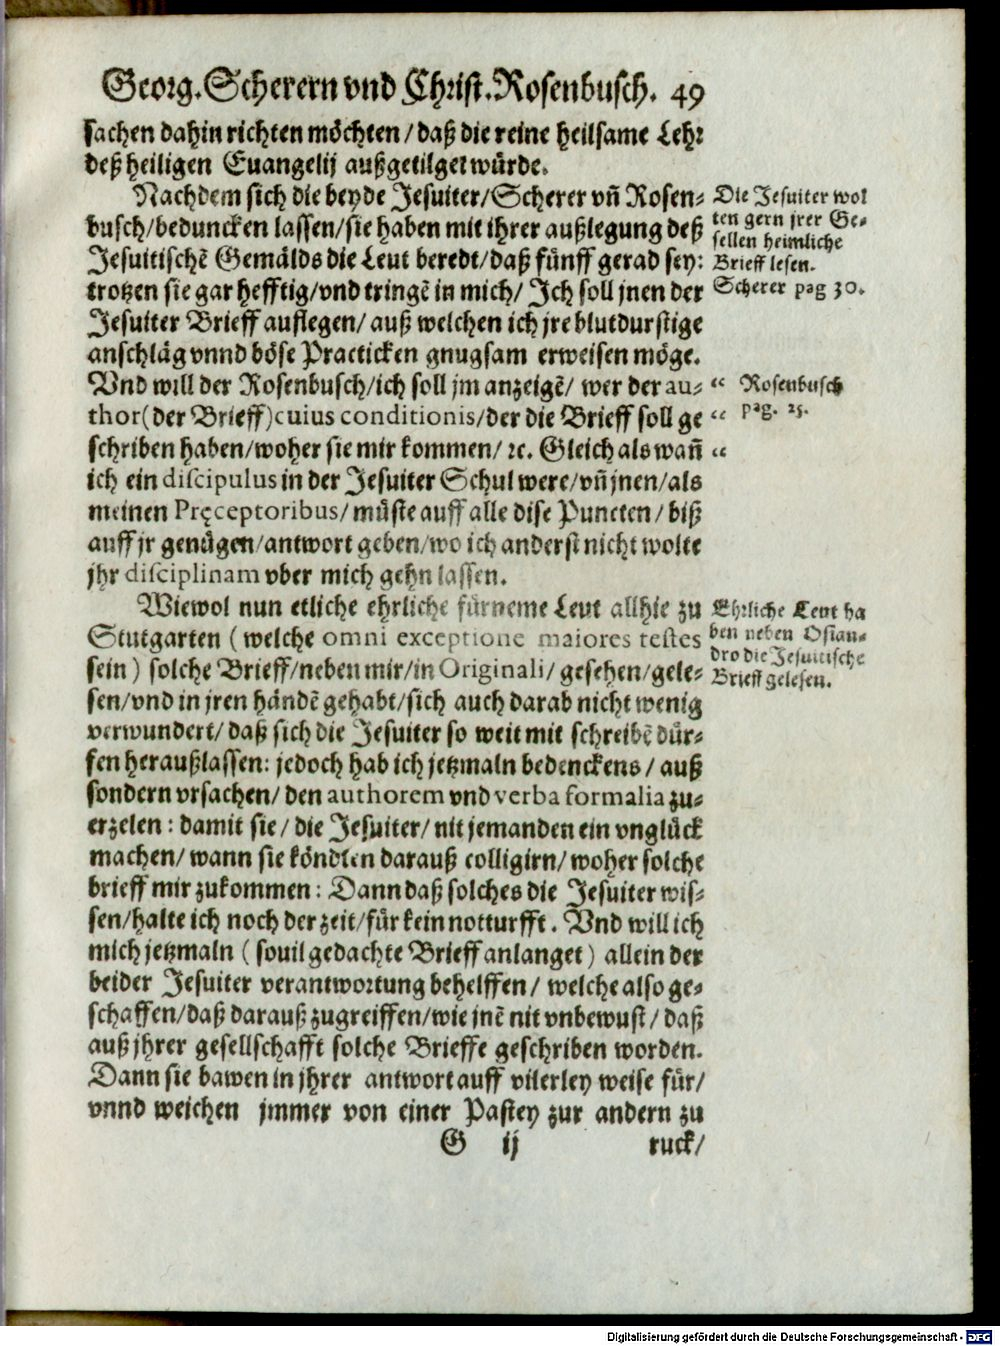 Georg. Scherern vnd Christ. Rosenbusch. 49
sachen dahin richten möchten / daß die reine heilsame Lehr
deß heiligen Euangelij außgetilget würde.
Nachdem sich die beyde Jesuiter / Scherer vñ Rosen-
busch / beduncken lassen / sie haben mit ihrer außlegung deß
Jesuitischẽ Gemälds die Leut beredt / daß fünff gerad sey:
trotzen sie gar hefftig / vnd tringẽ in mich / Ich soll jnen der
Jesuiter Brieff auflegen / auß welchen ich jre blutdurstige
anschläg vnnd böse Practicken gnugsam erweisen möge.
Vnd will der Rosenbusch / ich soll jm anzeigẽ / wer der au-
thor (der Brieff) cuius conditionis / der die Brieff soll ge
schriben haben / woher sie mir kommen / ꝛc. Gleich als wañ
ich ein discipulus in der Jesuiter Schul were / vñ jnen / als
meinen Pręceptoribus / müste auff alle dise Puncten / biß
auff jr genügen / antwort geben / wo ich anderst nicht wolte
jhr disciplinam vber mich gehn lassen.
Wiewol nun etliche ehrliche fürneme Leut allhie zu
Stutgarten (welche omni exceptione maiores testes
sein) solche Brieff / neben mir / in Originali / gesehen / gele-
sen / vnd in jren händẽ gehabt / sich auch darab nicht wenig
verwundert / daß sich die Jesuiter so weit mit schreibẽ dür-
fen heraußlassen: jedoch hab ich jetzmaln bedenckens / auß
sondern vrsachen / den authorem vnd verba formalia zu-
erzelen: damit sie / die Jesuiter / nit jemanden ein vnglück
machen / wann sie köndten darauß colligirn / woher solche
brieff mir zukommen: Dann daß solches die Jesuiter wis-
sen / halte ich noch der zeit / für kein notturfft. Vnd will ich
mich jetzmaln (souil gedachte Brieff anlanget) allein der
beider Jesuiter verantwortung behelffen / welche also ge-
schaffen / daß darauß zugreiffen / wie jnẽ nit vnbewust / daß
auß jhrer gesellschafft solche Brieffe geschriben worden.
Dann sie bawen in jhrer antwort auff vilerley weise für /
vnnd weichen jmmer von einer Pastey zur andern zu
G ij ruck /
Die Jesuiter wol
ten gern jrer Ge-
sellen heimliche
Brieff lesen.
Scherer pag 30.
“ Rosenbusch
“ pag. 25.
“
Ehrliche Leut ha
ben neben Osian-
dro die Jesuitische
Brieff gelesen.
Digitalisierung gefördert durch die Deutsche Forschungsgemeinschaft - DFG